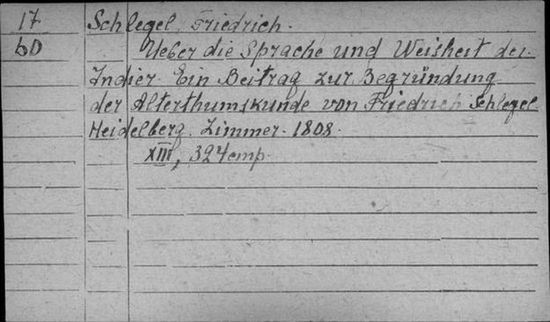 17 Schlegel, Friedrich.
60 Ueber die Sprache und Weisheit der
Indier. Ein Beitrag zur Begründung
der Alterthumskunde von Friedrich Schlegel
Heidelberg, Zimmer. 1808.
XIII, 324 стр.